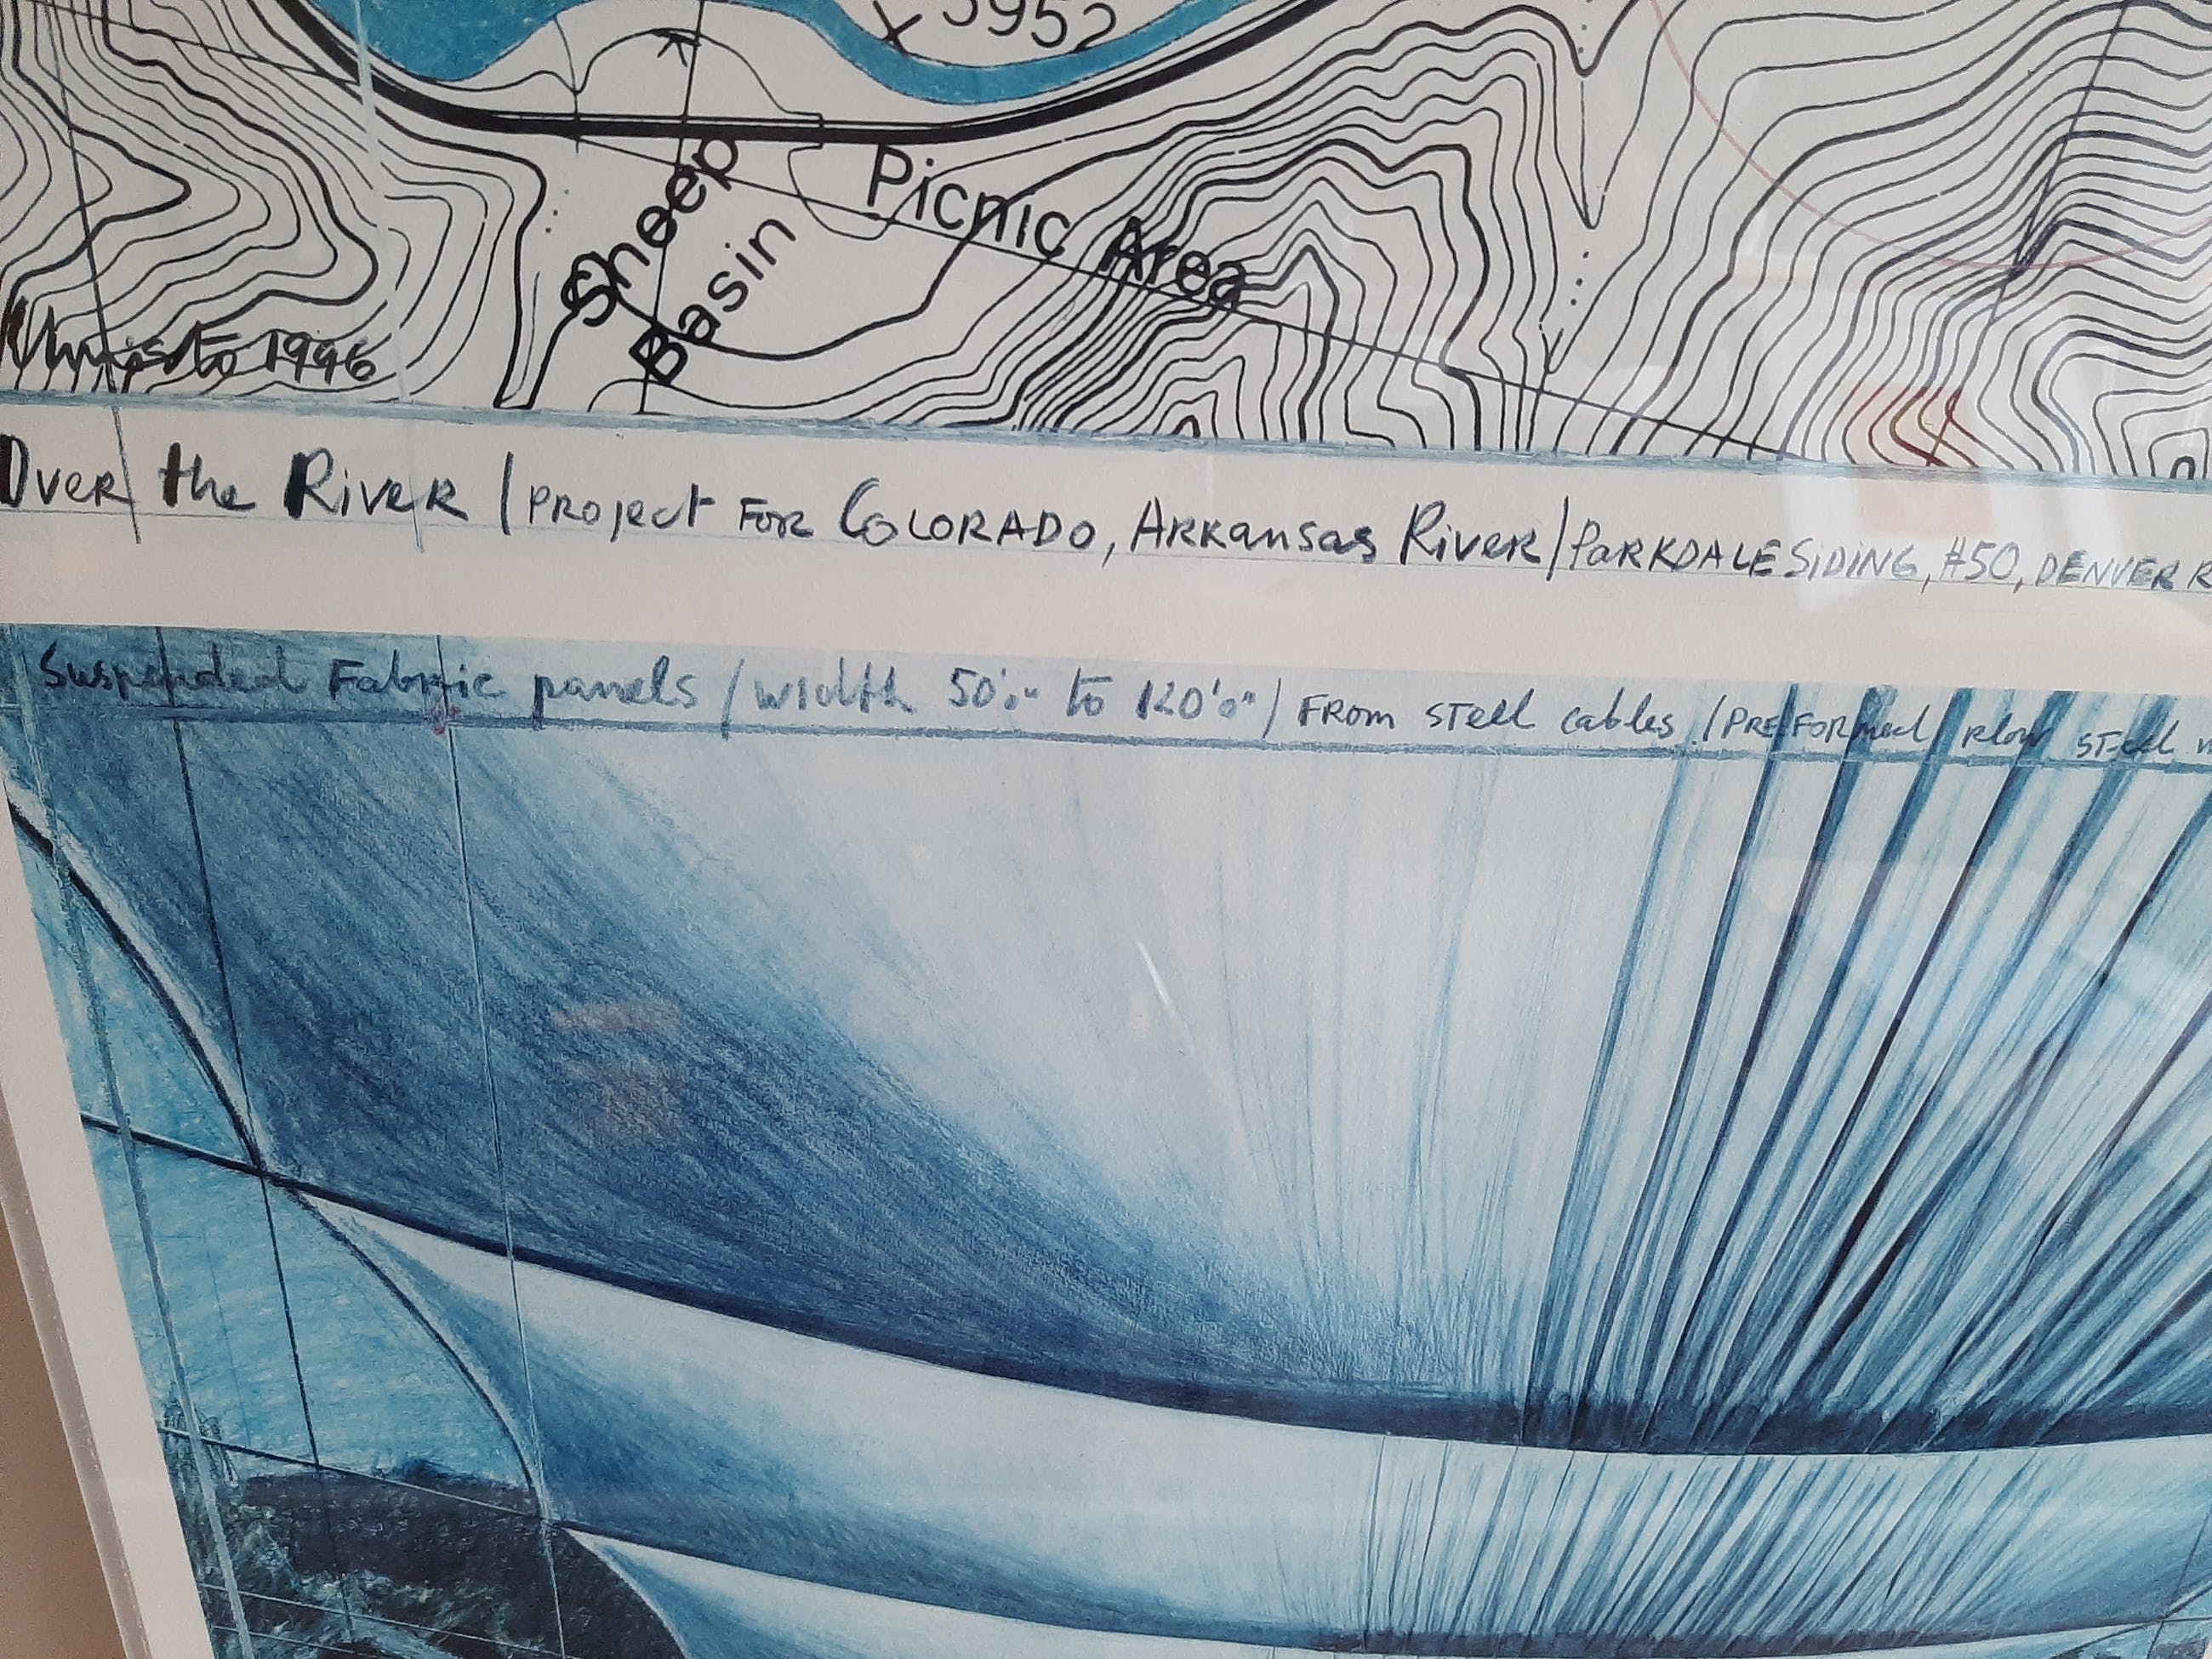 X 5952
Sheep
Basin
Picnic Area
Christo 1996
Over the River / PROJECT FOR COLORADO, ARKANSAS RIVER / PARKDALE SIDING, #50, DENVER R
Suspended Fabric panels / width 50'0" to 120'0" / FROM STEEL cables / PREFORMED STEEL